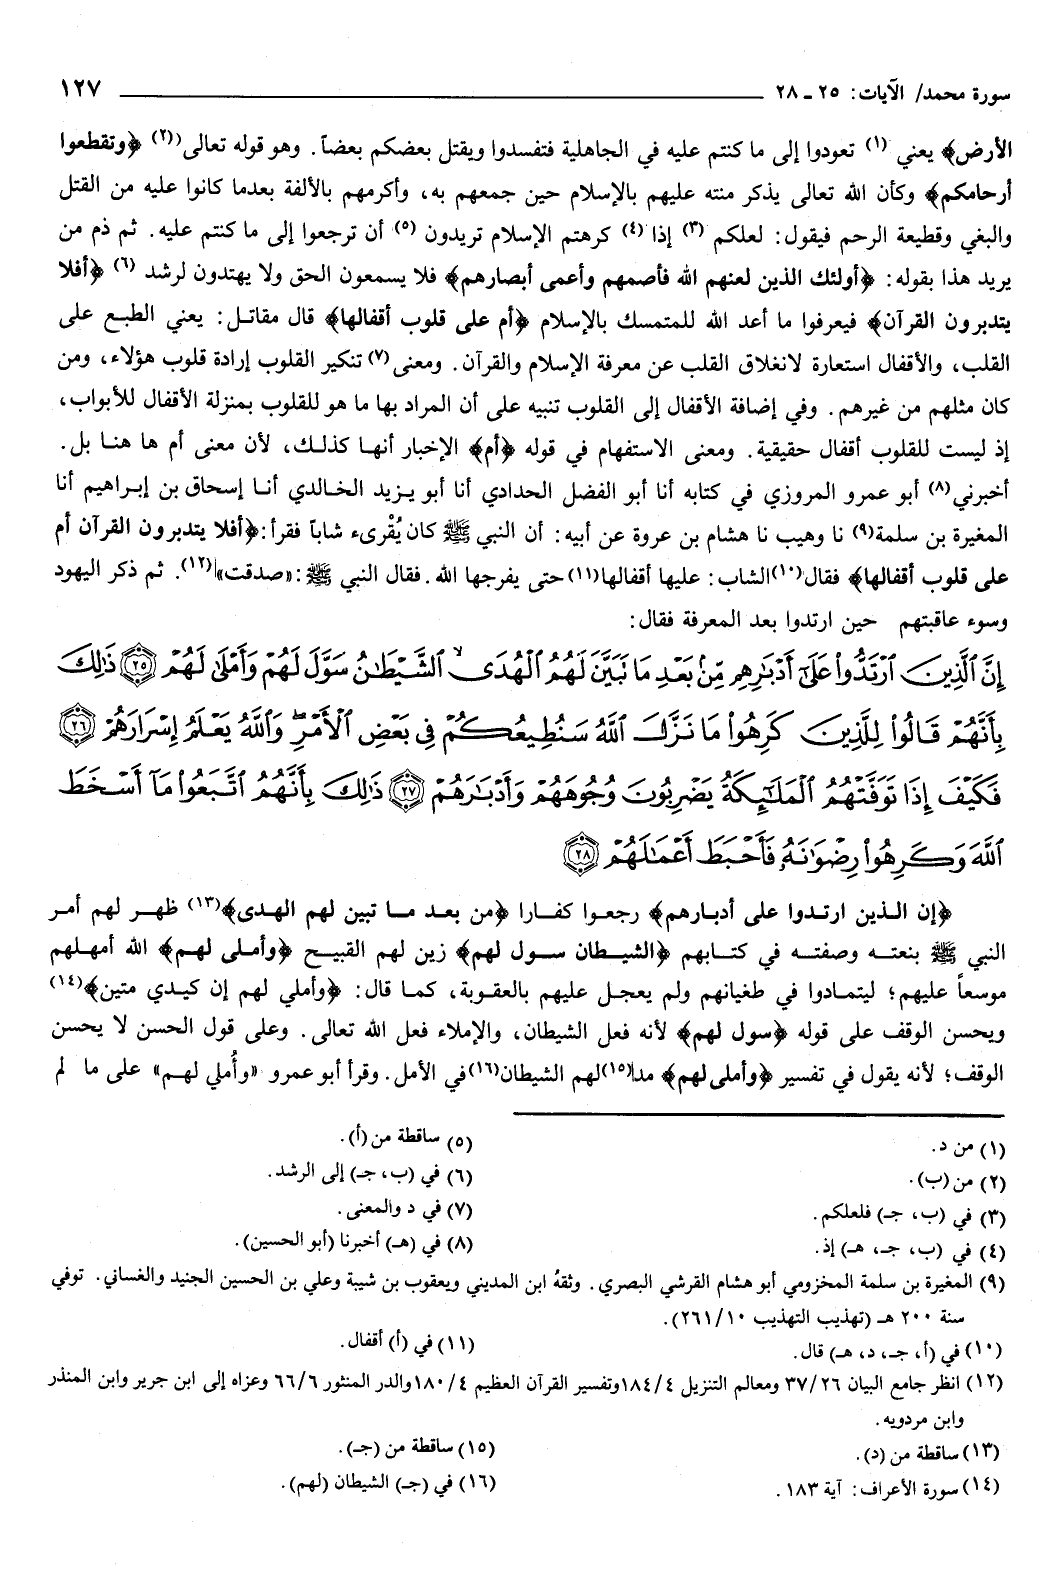 سورة محمد/ الآيات: ٢٥ ـ ٢٨ ١٢٧
الأرض﴾ يعني (١) تعودوا إلى ما كنتم عليه في الجاهلية فتفسدوا ويقتل بعضكم بعضاً. وهو قوله تعالى(٢) ﴿وتقطعوا
أرحامكم﴾ وكأن الله تعالى يذكر منته عليهم بالإسلام حين جمعهم به، وأكرمهم بالألفة بعدما كانوا عليه من القتل
والبغي وقطيعة الرحم فيقول: لعلكم (٣) إذا (٤) كرهتم الإسلام تريدون (٥) أن ترجعوا إلى ما كنتم عليه. ثم ذم من
يريد هذا بقوله: ﴿أولئك الذين لعنهم الله فأصمهم وأعمى أبصارهم﴾ فلا يسمعون الحق ولا يهتدون لرشد (٦) ﴿أفلا
يتدبرون القرآن﴾ فيعرفوا ما أعد الله للمتمسك بالإسلام ﴿أم على قلوب أقفالها﴾ قال مقاتل: يعني الطبع على
القلب، والأقفال استعارة لانغلاق القلب عن معرفة الإسلام والقرآن. ومعنى (٧) تنكير القلوب إرادة قلوب هؤلاء، ومن
كان مثلهم من غيرهم. وفي إضافة الأقفال إلى القلوب تنبيه على أن المراد بها ما هو للقلوب بمنزلة الأقفال للأبواب،
إذ ليست للقلوب أقفال حقيقية. ومعنى الاستفهام في قوله ﴿أم﴾ الإخبار أنها كذلك، لأن معنى أم ها هنا بل.
أخبرني (٨) أبو عمرو المروزي في كتابه أنا أبو الفضل الحدادي أنا أبو يزيد الخالدي أنا إسحاق بن إبراهيم أنا
المغيرة بن سلمة(٩) نا وهيب نا هشام بن عروة عن أبيه: أن النبي ﷺ كان يُقْرىء شاباً فقرأ: ﴿أفلا يتدبرون القرآن أم
على قلوب أقفالها﴾ فقال(١٠) الشاب: عليها أقفالها(١١) حتى يفرجها الله. فقال النبي ﷺ: «صدقت»(١٢). ثم ذكر اليهود
وسوء عاقبتهم حين ارتدوا بعد المعرفة فقال:
إِنَّ الَّذِينَ ارْتَدُّوا عَلَىٰ أَدْبَارِهِم مِّن بَعْدِ مَا تَبَيَّنَ لَهُمُ الْهُدَى ۙ الشَّيْطَانُ سَوَّلَ لَهُمْ وَأَمْلَىٰ لَهُمْ ﴿٢٥﴾ ذَٰلِكَ
بِأَنَّهُمْ قَالُوا لِلَّذِينَ كَرِهُوا مَا نَزَّلَ اللَّهُ سَنُطِيعُكُمْ فِي بَعْضِ الْأَمْرِ ۖ وَاللَّهُ يَعْلَمُ إِسْرَارَهُمْ ﴿٢٦﴾
فَكَيْفَ إِذَا تَوَفَّتْهُمُ الْمَلَائِكَةُ يَضْرِبُونَ وُجُوهَهُمْ وَأَدْبَارَهُمْ ﴿٢٧﴾ ذَٰلِكَ بِأَنَّهُمُ اتَّبَعُوا مَا أَسْخَطَ
اللَّهَ وَكَرِهُوا رِضْوَانَهُ فَأَحْبَطَ أَعْمَالَهُمْ ﴿٢٨﴾
﴿إن الذين ارتدوا على أدبارهم﴾ رجعوا كفارا ﴿من بعد ما تبين لهم الهدى﴾(١٣) ظهر لهم أمر
النبي ﷺ بنعته وصفته في كتابهم ﴿الشيطان سول لهم﴾ زين لهم القبيح ﴿وأملى لهم﴾ الله أمهلهم
موسعاً عليهم؛ ليتمادوا في طغيانهم ولم يعجل عليهم بالعقوبة، كما قال: ﴿وأملي لهم إن كيدي متين﴾(١٤)
ويحسن الوقف على قوله ﴿سول لهم﴾ لأنه فعل الشيطان، والإملاء فعل الله تعالى. وعلى قول الحسن لا يحسن
الوقف؛ لأنه يقول في تفسير ﴿وأملى لهم﴾ مدا(١٥) لهم الشيطان(١٦) في الأمل. وقرأ أبو عمرو «وأُملي لهم» على ما لم
(١) من د.
(٢) من (ب).
(٣) في (ب، جـ) فلعلكم.
(٤) في (ب، جـ، هـ) إذ.
(٥) ساقطة من (أ).
(٦) في (ب، جـ) إلى الرشد.
(٧) في د والمعنى.
(٨) في (هـ) أخبرنا (أبو الحسين).
(٩) المغيرة بن سلمة المخزومي أبو هشام القرشي البصري. وثقهُ ابن المديني ويعقوب بن شيبة وعلي بن الحسين الجنيد والغساني. توفي
سنة ٢٠٠ هـ (تهذيب التهذيب ١٠/٢٦١).
(١٠) في (أ، جـ، د، هـ) قال.
(١١) في (أ) أقفال.
(١٢) انظر جامع البيان ٣٧/٢٦ ومعالم التنزيل ١٨٤/٤ وتفسير القرآن العظيم ١٨٠/٤ والدر المنثور ٦٦/٦ وعزاه إلى ابن جرير وابن المنذر
وابن مردويه.
(١٣) ساقطة من (د).
(١٤) سورة الأعراف: آية ١٨٣.
(١٥) ساقطة من (جـ).
(١٦) في (جـ) الشيطان (لهم).